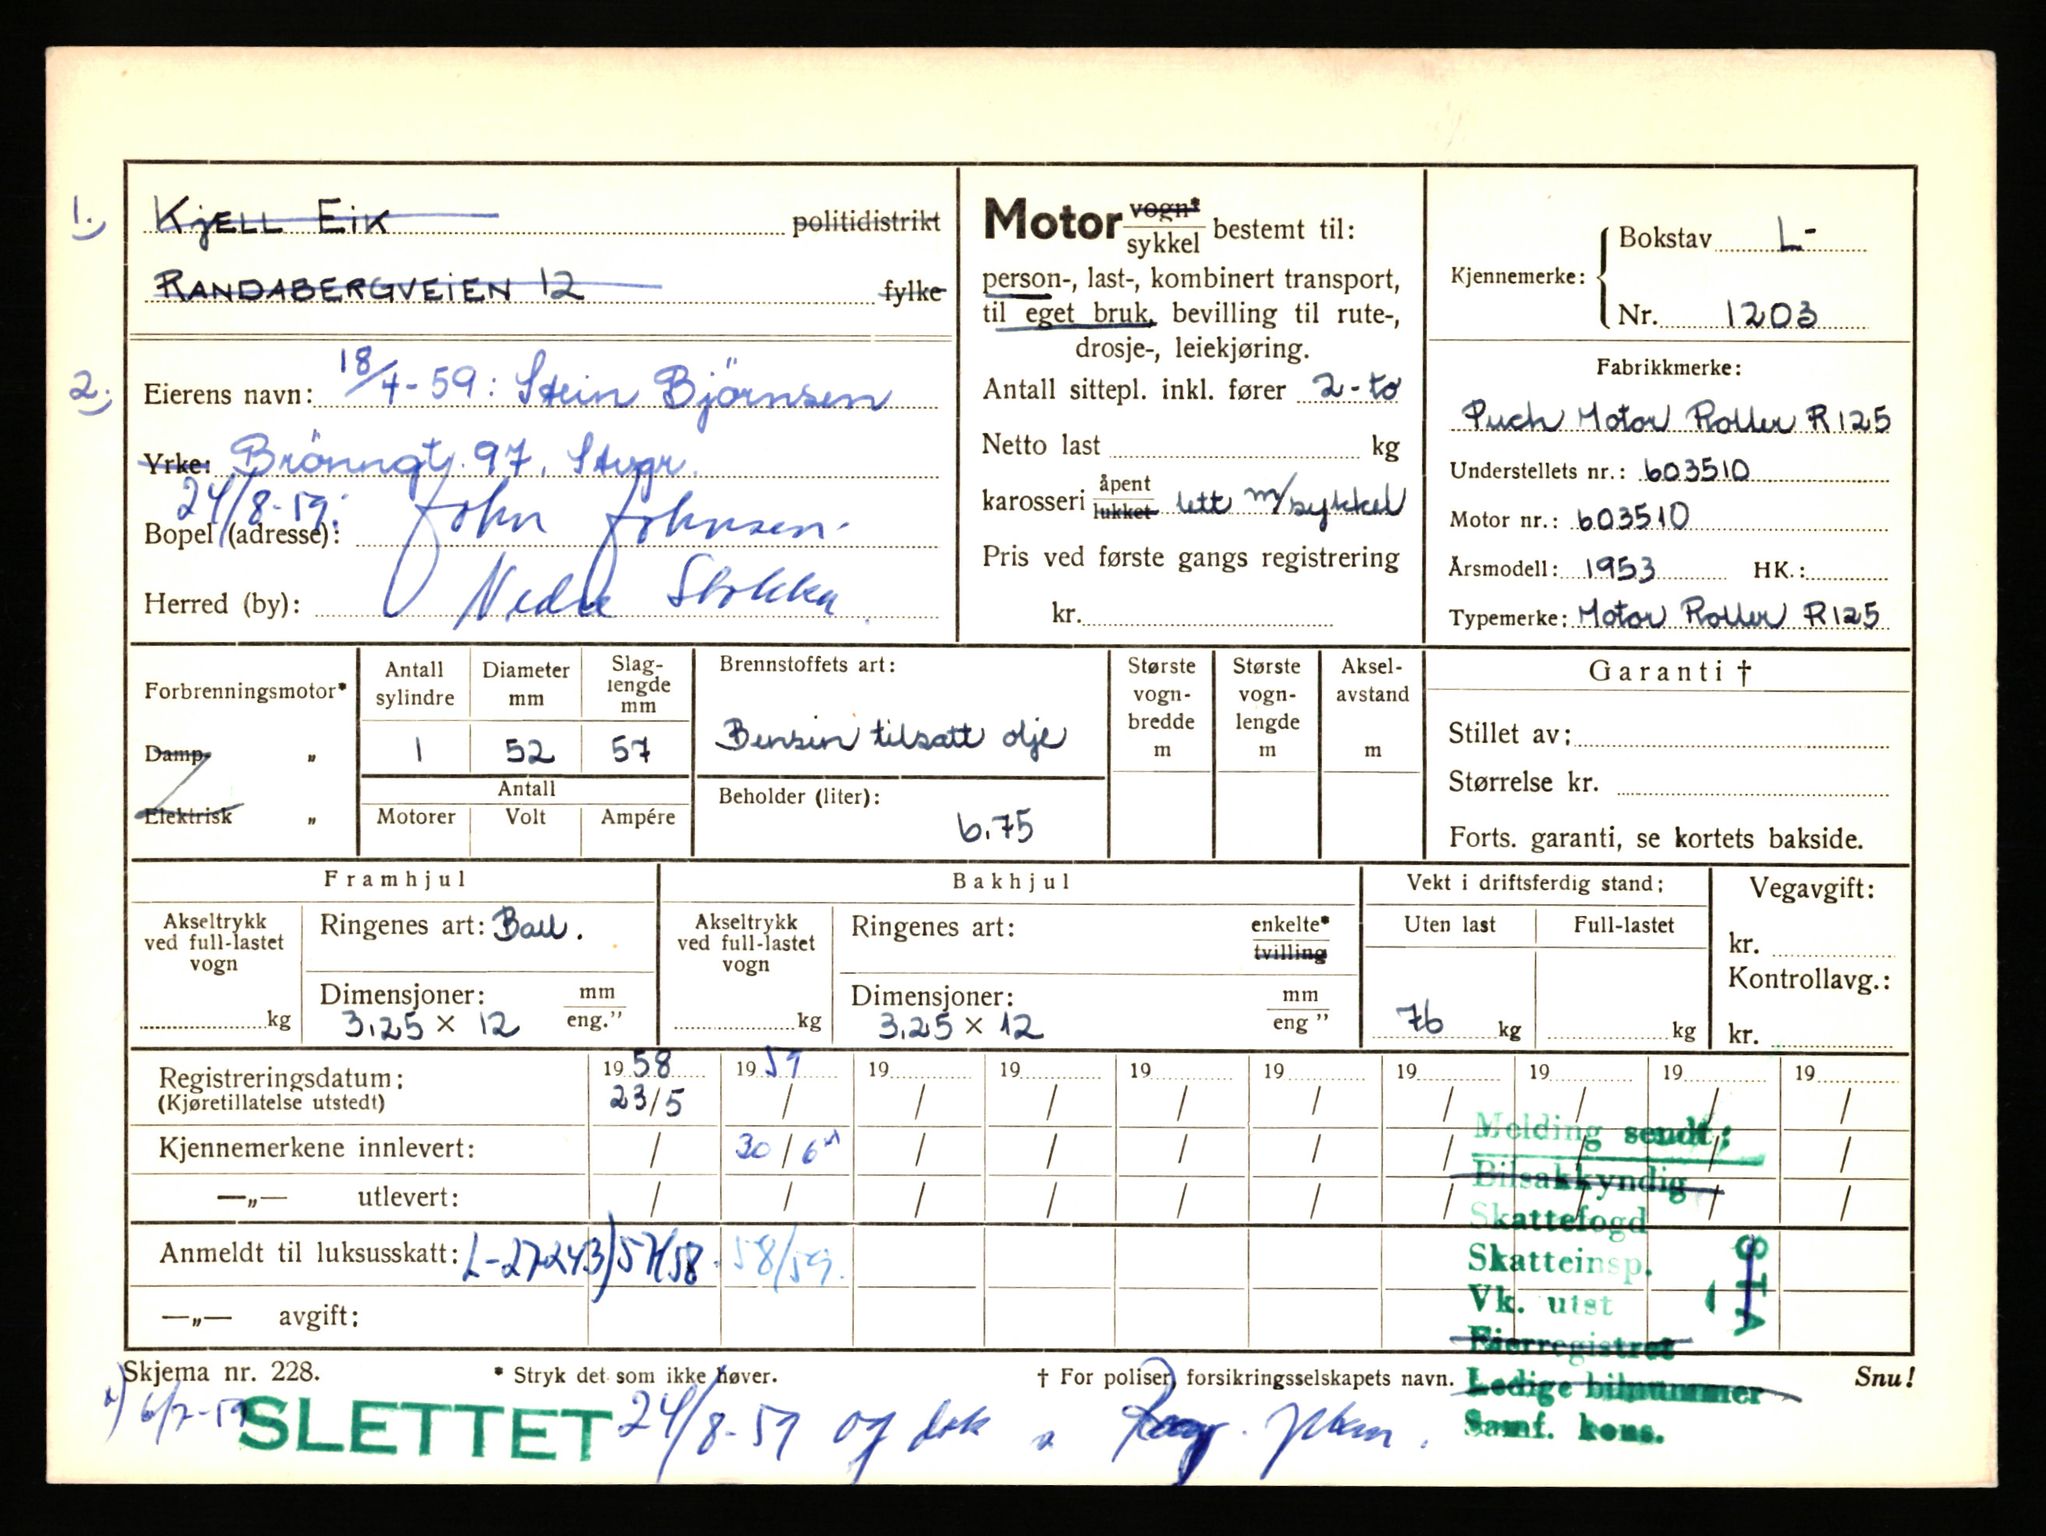 1.
Kjell Eik politidistrikt
Randabergveien 12 fylke
2.
Eierens navn: 18/4-59: Stein Björnsen
Yrke: Brönngt. 97, Stvgr.
24/8-59: John Johnsen
Bopel (adresse):
Herred (by): Nedre Stokka
Motor vogn*
sykkel bestemt til:
person-, last-, kombinert transport,
til eget bruk, bevilling til rute-,
drosje-, leiekjøring.
Antall sittepl. inkl. fører 2-to
Netto last kg
karosseri åpent
lukket lett m/sykkel
Pris ved første gangs registrering
kr.
Kjennemerke: Bokstav L-
Nr. 1203
Fabrikkmerke:
Puch Motor Roller R125
Understellets nr.: 603510
Motor nr.: 603510
Årsmodell: 1953 HK.:
Typemerke: Motor Roller R125
Forbrenningsmotor*
Damp „
Elektrisk „
Antall sylindre
1
Diameter mm
52
Slag-
lengde
mm
57
Antall
Motorer Volt Ampére
Brennstoffets art:
Bensin tilsatt olje
Beholder (liter):
6.75
Største
vogn-
bredde
m
Største
vogn-
lengde
m
Aksel-
avstand
m
Garanti †
Stillet av:
Størrelse kr.
Forts. garanti, se kortets bakside.
Framhjul
Akseltrykk
ved full-lastet
vogn
kg
Ringenes art: Ball.
Dimensjoner: mm
3.25 × 12 eng.”
Bakhjul
Akseltrykk
ved full-lastet
vogn
kg
Ringenes art: enkelte*
tvilling
Dimensjoner: mm
3.25 × 12 eng ”
Vekt i driftsferdig stand:
Uten last Full-lastet
76 kg kg
Vegavgift:
kr.
Kontrollavg.:
kr.
Registreringsdatum: 1958 1959 19 19 19 19 19 19 19 19
(Kjøretillatelse utstedt) 23/5 / / / / / / / / /
Kjennemerkene innlevert: / 30/6 / / / / / / / /
—„— utlevert: / / / / / / / / / /
Anmeldt til luksusskatt: L-27243) 57/58. 58/59.
—„— avgift:
Melding sendt:
Bilsakkyndig
Skattefogd
Skatteinsp.
Vk. utst
Eierregistret
Ledige bilnummer
Samf. kons.
Skjema nr. 228. * Stryk det som ikke høver. † For poliser, forsikringsselskapets navn. Snu!
6/7-59 SLETTET 24/8-59 og